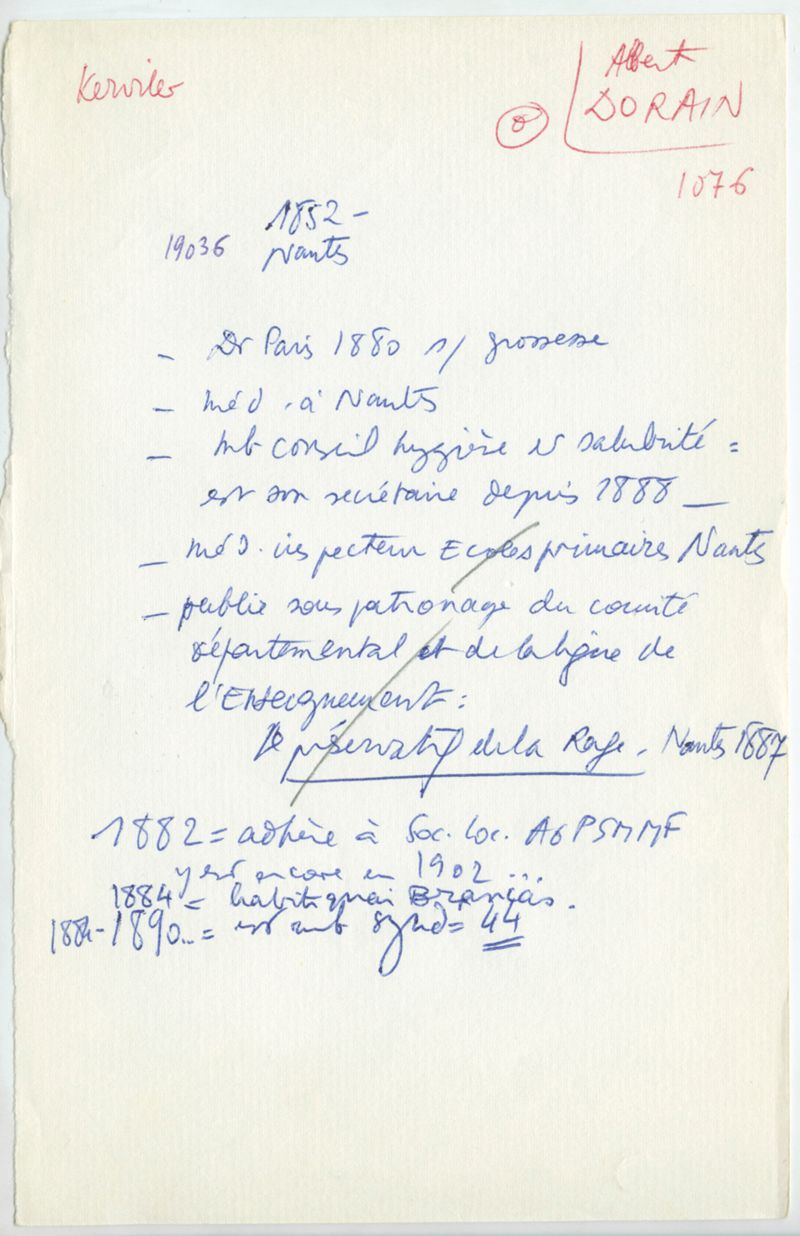 Kerviler
Albert
DORAIN
1076
1852 -
19036 Nantes
- Dr Paris 1880 s/ grossesse
- méd. à Nantes
- mb conseil hygiène et salubrité =
est son secrétaire depuis 1888 -
- méd. inspecteur Ecoles primaires Nantes
- publie sous patronage du comité
départemental et de la ligue de
l'Enseignement :
le préservatif de la Rage. Nantes 1887
1882 = adhère à Soc. loc. AGPSMMF
y est encore en 1902 ...
1884 = habite quai Brancas.
1884-1890.. = est mb synd = 44